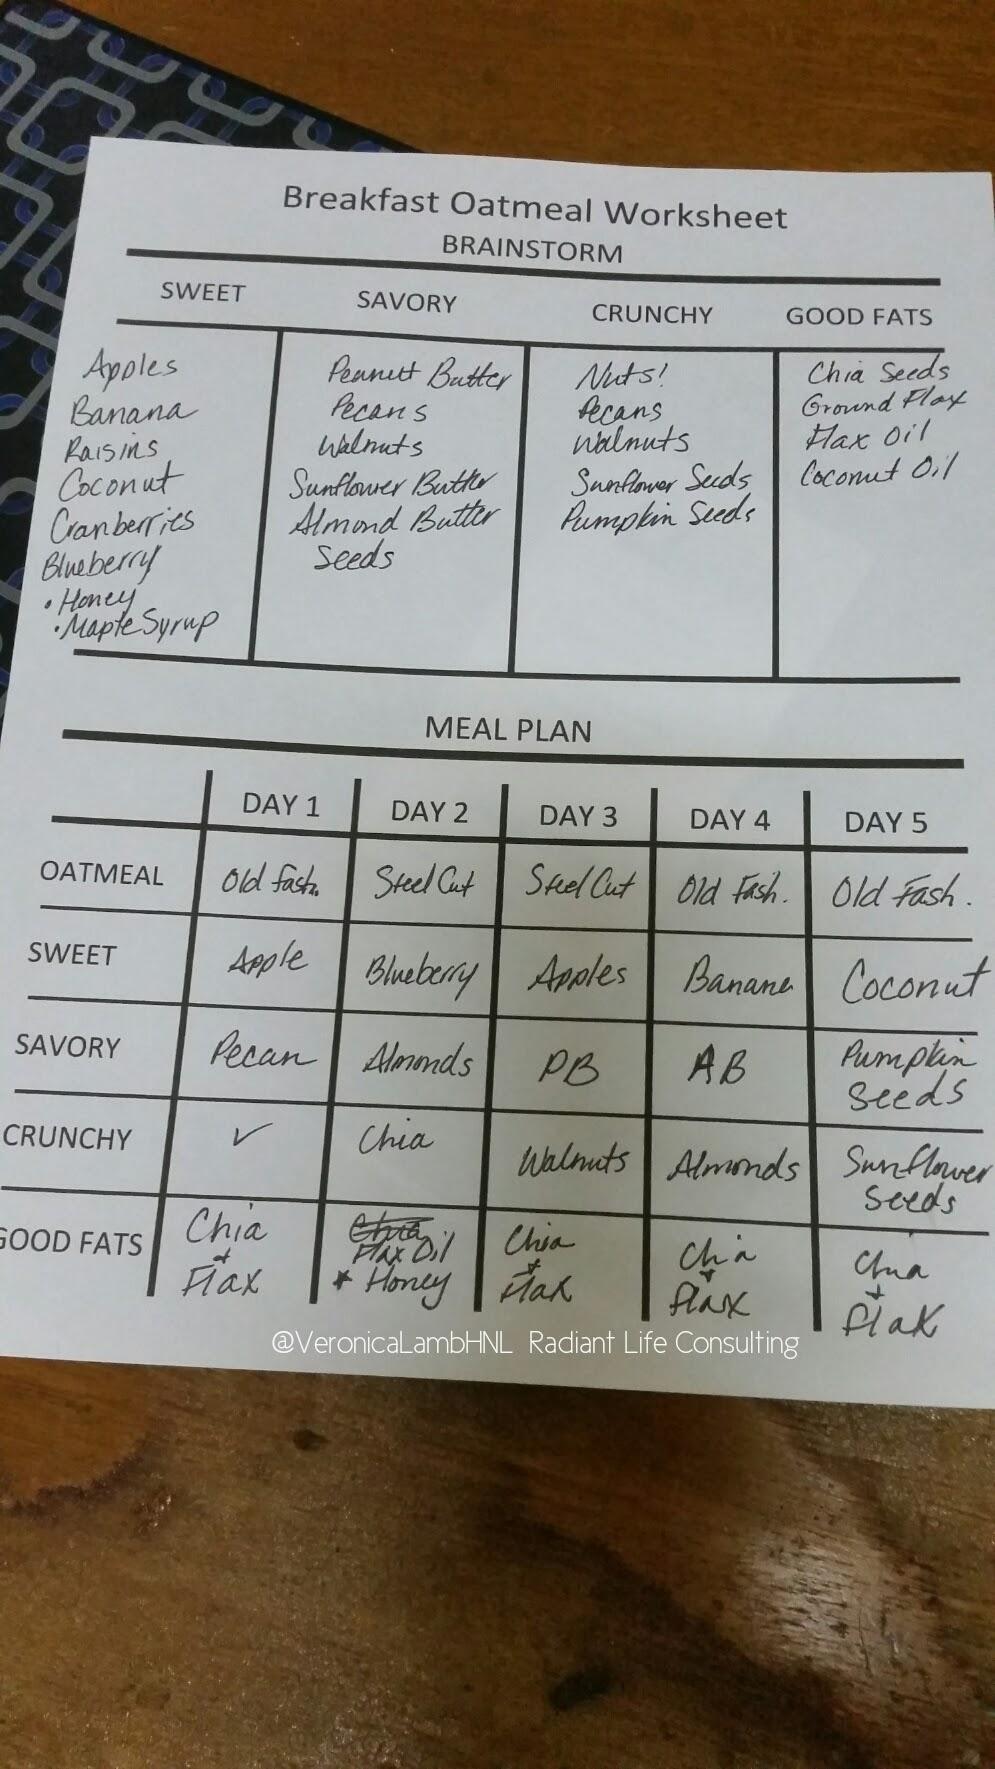 Breakfast Oatmeal Worksheet
BRAINSTORM
SWEET SAVORY CRUNCHY GOOD FATS
Apples Peanutt Butter Nuts! Chia Seeds
Banana Pecans Pecans Ground Flax
Raisins Walnuts Walnuts Flax Oil
Coconut Sunflower Butter Sunflower Seeds Coconut Oil
Cranberries Almond Butter Pumpkin Seeds
Blueberry Seeds
• Honey
• Maple Syrup
MEAL PLAN
DAY 1 DAY 2 DAY 3 DAY 4 DAY 5
OATMEAL Old Fash. Steel Cut Steel Cut Old Fash. Old Fash.
SWEET Apple Blueberry Apples Banana Coconut
SAVORY Pecan Almonds PB AB Pumpkin
Seeds
CRUNCHY ✓ Chia Walnuts Almonds Sunflower
Seeds
GOOD FATS Chia Chia Chia Chia Chia
+ Flax Oil + + +
Flax * Honey Flax Flax Flax
@VeronicaLambHNL Radiant Life Consulting